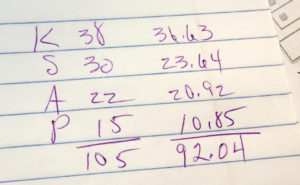 K 38 36.63
S 30 23.64
A 22 20.92
P 15 10.85
105 92.04